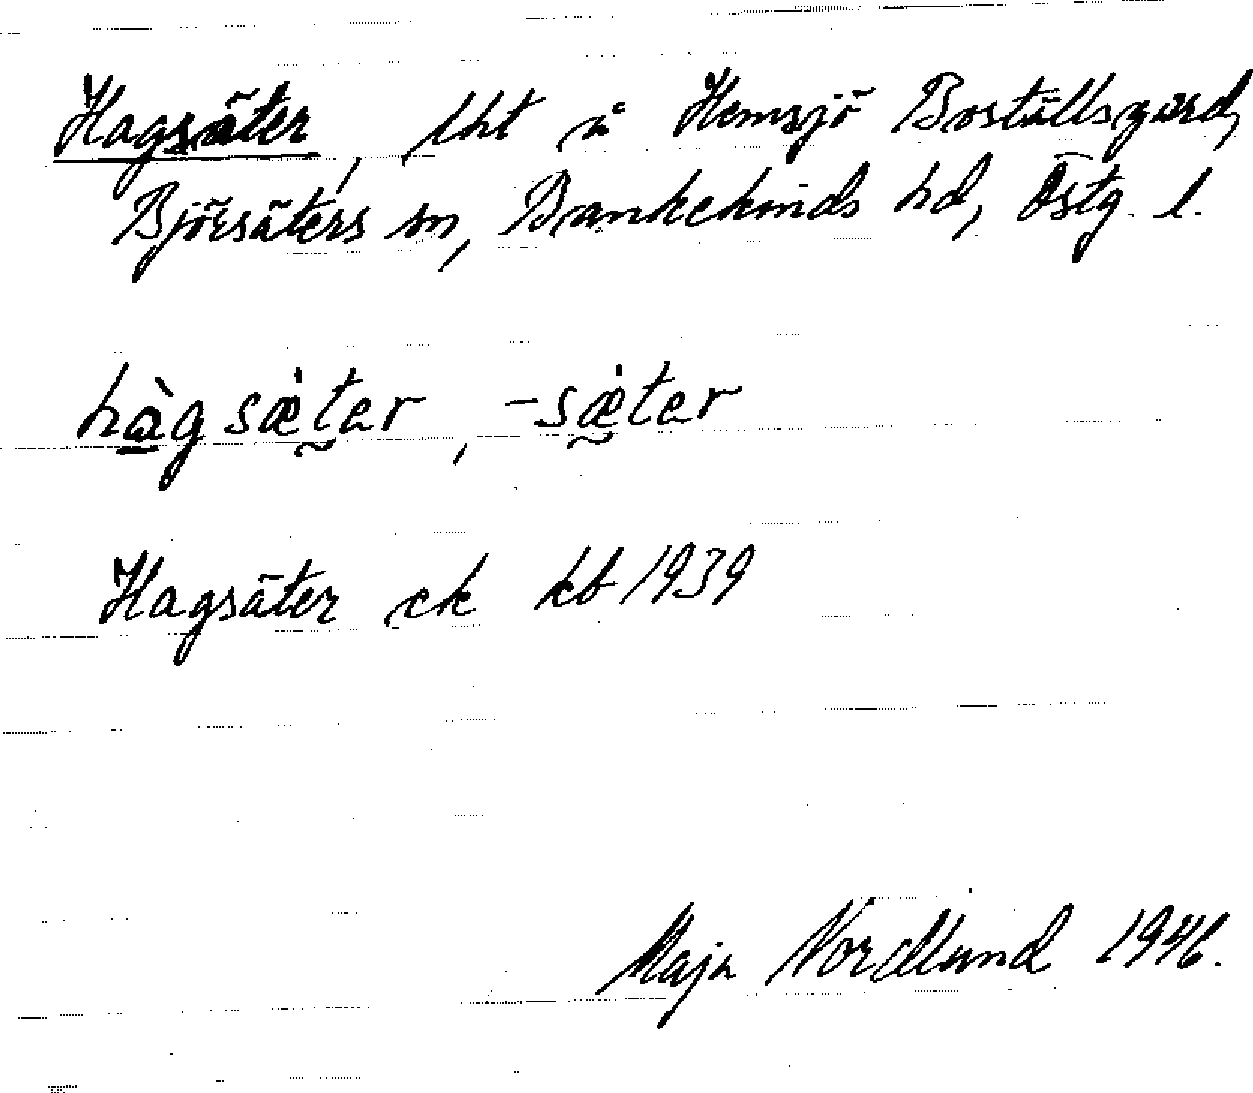 Hagsäter, lht å Hemsjö Boställsgård,
Björsäters sn, Bankekinds hd, Östg. l.
hàgsæ̀ter, -sæ̀ter
Hagsäter ek kb 1939
Maja Nordlund 1946.